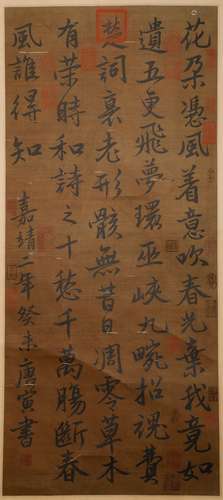 花朵憑風着意吹春光棄我竟如
遺五更飛夢環巫峽九畹招魂費
楚詞衰老形骸無昔日凋零草木
有荣時和詩之十愁千萬腸斷春
風誰得知 嘉靖二年癸未唐寅書